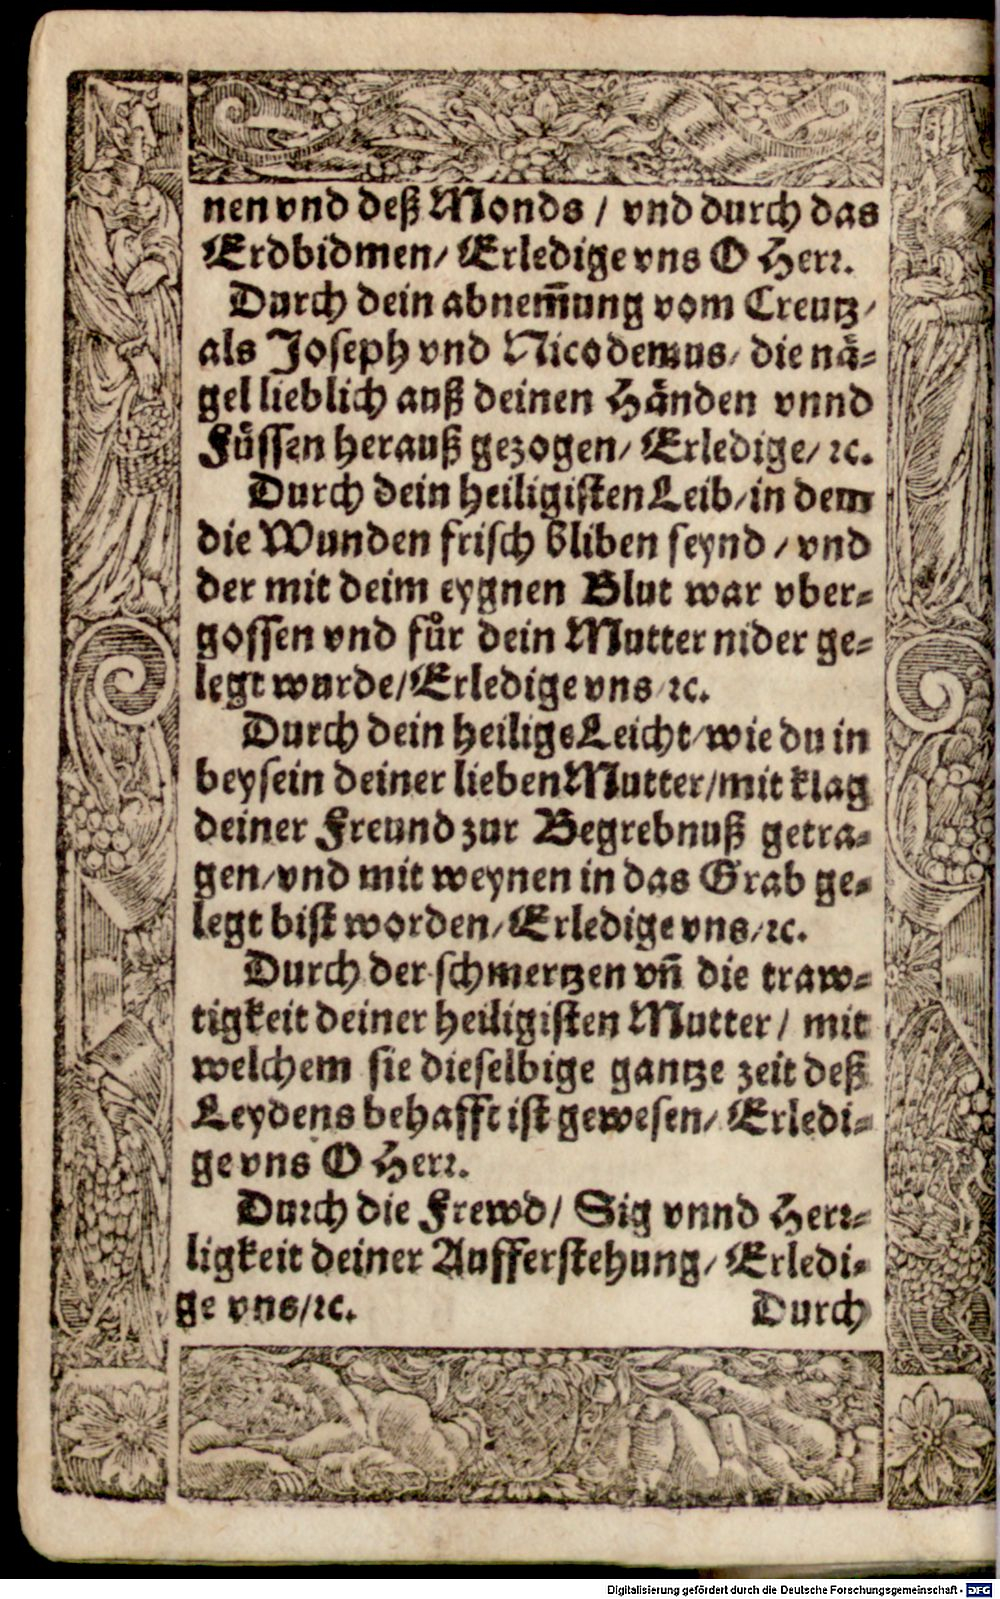 nen vnd deß Monds / vnd durch das
Erdbidmen / Erledige vns O Herr.
Durch dein abnem̃ung vom Creutz /
als Joseph vnd Nicodemus / die nä-
gel lieblich auß deinen Händen vnnd
Füssen herauß gezogen / Erledige / ꝛc.
Durch dein heiligisten Leib / in dem
die Wunden frisch bliben seynd / vnd
der mit deim eygnen Blut war vber-
gossen vnd fůr dein Mutter nider ge-
legt wurde / Erledige vns ꝛc.
Durch dein heilige Leicht / wie du in
beysein deiner lieben Mutter / mit klag
deiner Freund zur Begrebnuß getra-
gen / vnd mit weynen in das Grab ge-
legt bist worden / Erledige vns / ꝛc.
Durch der schmertzen vñ die traw-
tigkeit deiner heiligisten Mutter / mit
welchem sie dieselbige gantze zeit deß
Leydens behafft ist gewesen / Erledi-
ge vns O Herr.
Durch die Frewd / Sig vnnd Herr-
ligkeit deiner Aufferstehung / Erledi-
ge vns / ꝛc. Durch
Digitalisierung gefördert durch die Deutsche Forschungsgemeinschaft - DFG